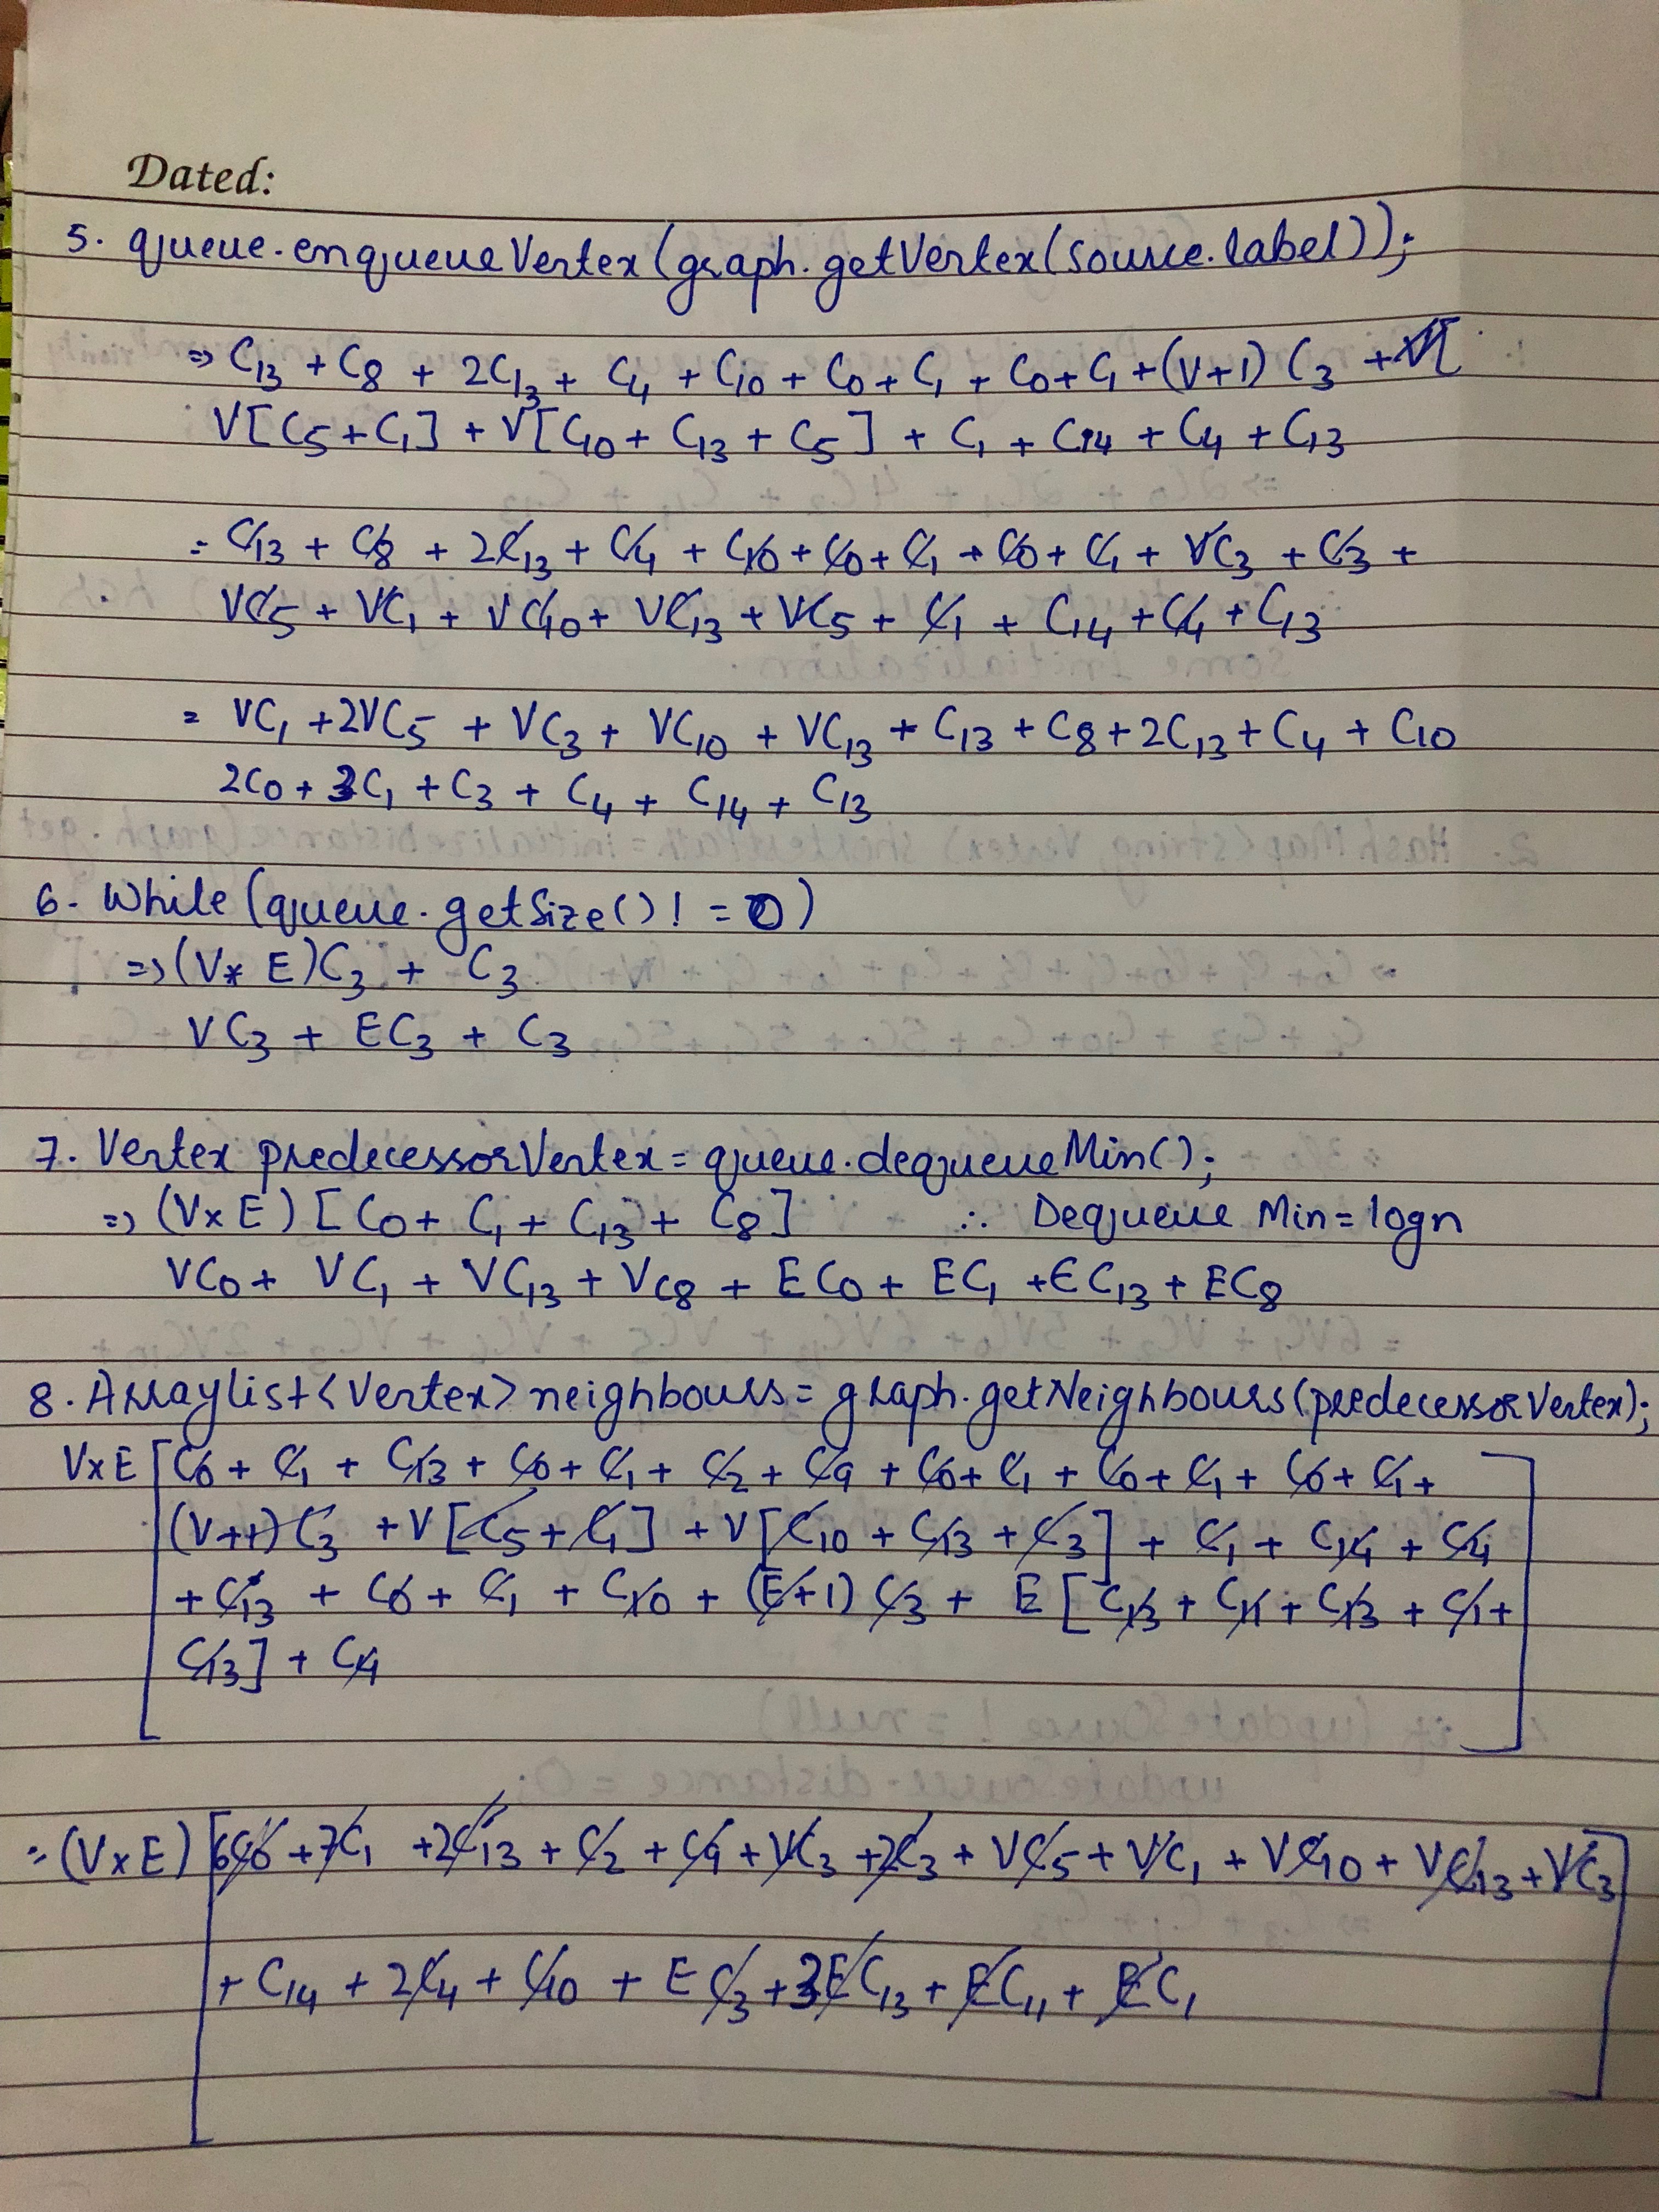 Dated:
5. queue.enqueueVertex(graph.getVertex(source.label));
⇒ C13 + C8 + 2C13 + C4 + C10 + C0 + C1 + C0 + C1 + (V+1) C3 +
V[C5+C1] + V[C10 + C13 + C5] + C1 + C14 + C4 + C13
= C13 + C8 + 2C13 + C4 + C10 + C0 + C1 + C0 + C1 + VC3 + C3 +
VC5 + VC1 + VC10 + VC13 + VC5 + C1 + C14 + C4 + C13
= VC1 + 2VC5 + VC3 + VC10 + VC13 + C13 + C8 + 2C13 + C4 + C10
2C0 + 3C1 + C3 + C4 + C14 + C13
6. While (queue.getSize() != 0)
⇒ (V* E)C3 + C3
VC3 + EC3 + C3
7. Vertex predecessorVertex = queue.dequeueMin();
⇒ (V×E) [C0 + C1 + C13 + C8] ∴ Dequeue Min = logn
VC0 + VC1 + VC13 + VC8 + EC0 + EC1 + EC13 + EC8
8. Arraylist<Vertex> neighbours = graph.getNeighbours(predecessorVertex);
V×E [C0 + C1 + C13 + C0 + C1 + C2 + C9 + C0 + C1 + C0 + C1 + C0 + C1 +
(V+1) C3 + V[C5 + C1] + V[C10 + C13 + C3] + C1 + C14 + C4
+ C13 + C0 + C1 + C10 + (E+1) C3 + E [C13 + C11 + C13 + C1 +
C13] + C4
= (V×E) [6C0 + 7C1 + 2C13 + C2 + C9 + VC3 + 2C3 + VC5 + VC1 + VC10 + VC13 + VC3
+ C14 + 2C4 + C10 + EC3 + 3EC13 + EC11 + EC1